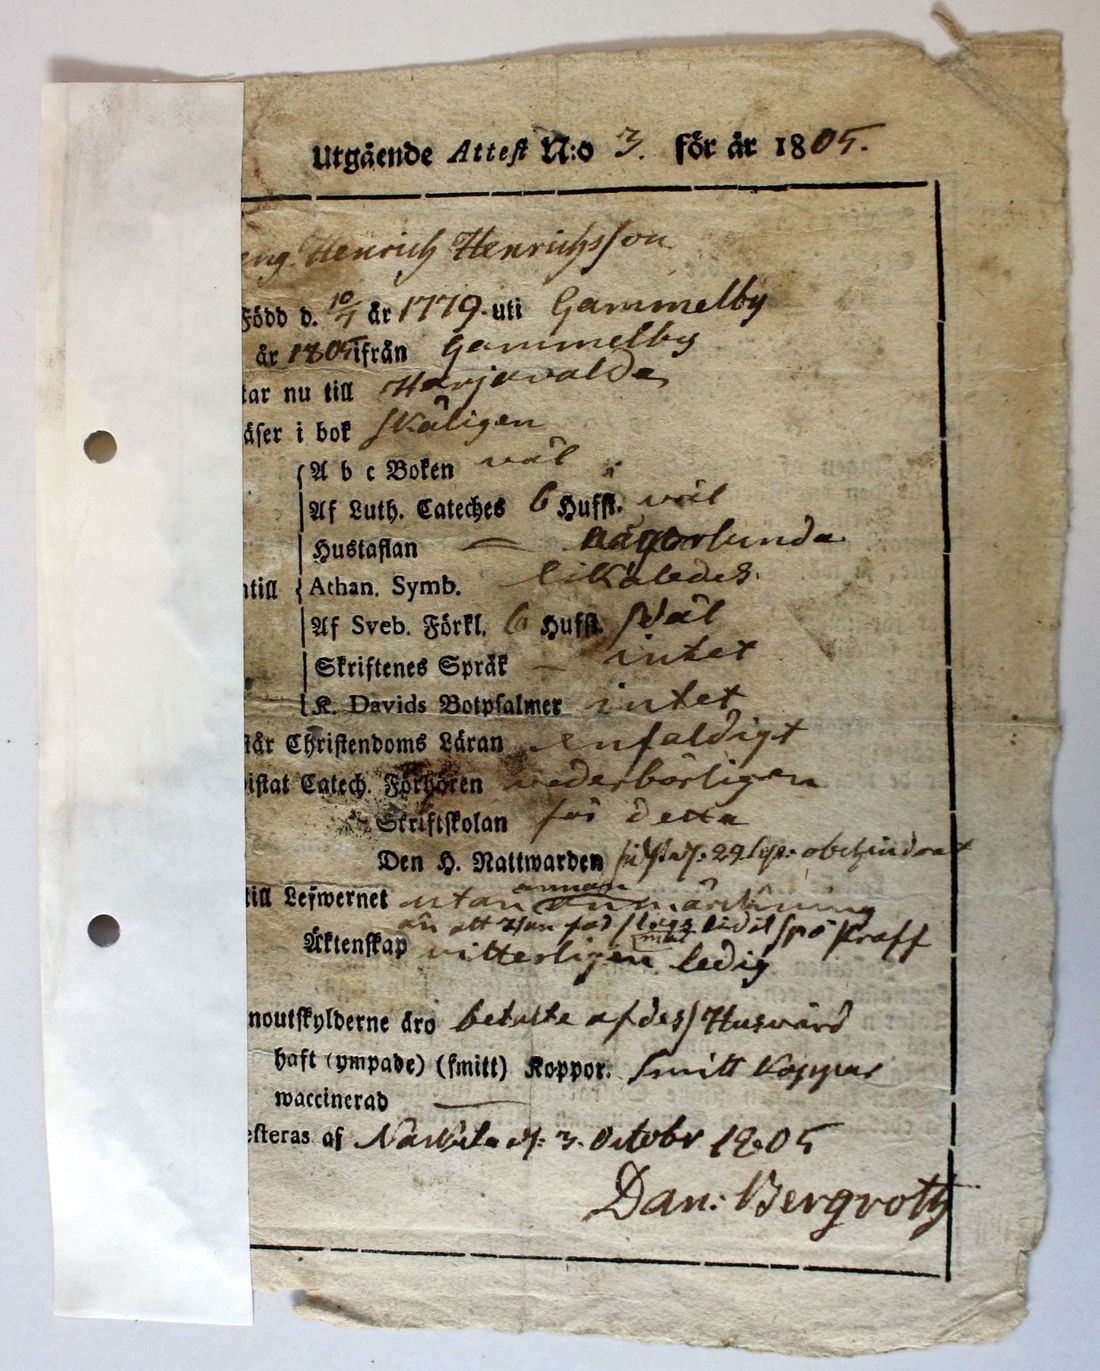 Utgående Attest N:o 3. för år 1805.
eng. Henrich Henrichsson
Född d. 10/7 år 1779 uti Gammelby
år 1805 ifrån Gammelby
tar nu till Harjavalda
äser i bok skäligen
A b c Boken väl
Af Luth. Cateches 6 Hufst. väl
Hustaflan någorlunda
ntill Athan. Symb. likaledes.
Af Sveb. Förkl. 6 Hufst. väl
Skriftenes Språk - intet
K. Davids Botpsalmer intet
står Christendoms Läran enfaldigt
istat Catech. Förhören vederbörligen
Skriftskolan för detta
Den H. Nattwarden sidst d. 29 obehindrat
till Lefwernet utan annan anmärkning
än att Han för lidit spö straff
Äktenskap vitterligen ledig
noutskylderne äro betalte af dess Husvärd
haft (ympade) (smitt) Koppor. Smitt Koppor
waccinerad —
esteras af Nakkila d. 3. Octobr 1805
Dan: Bergroth